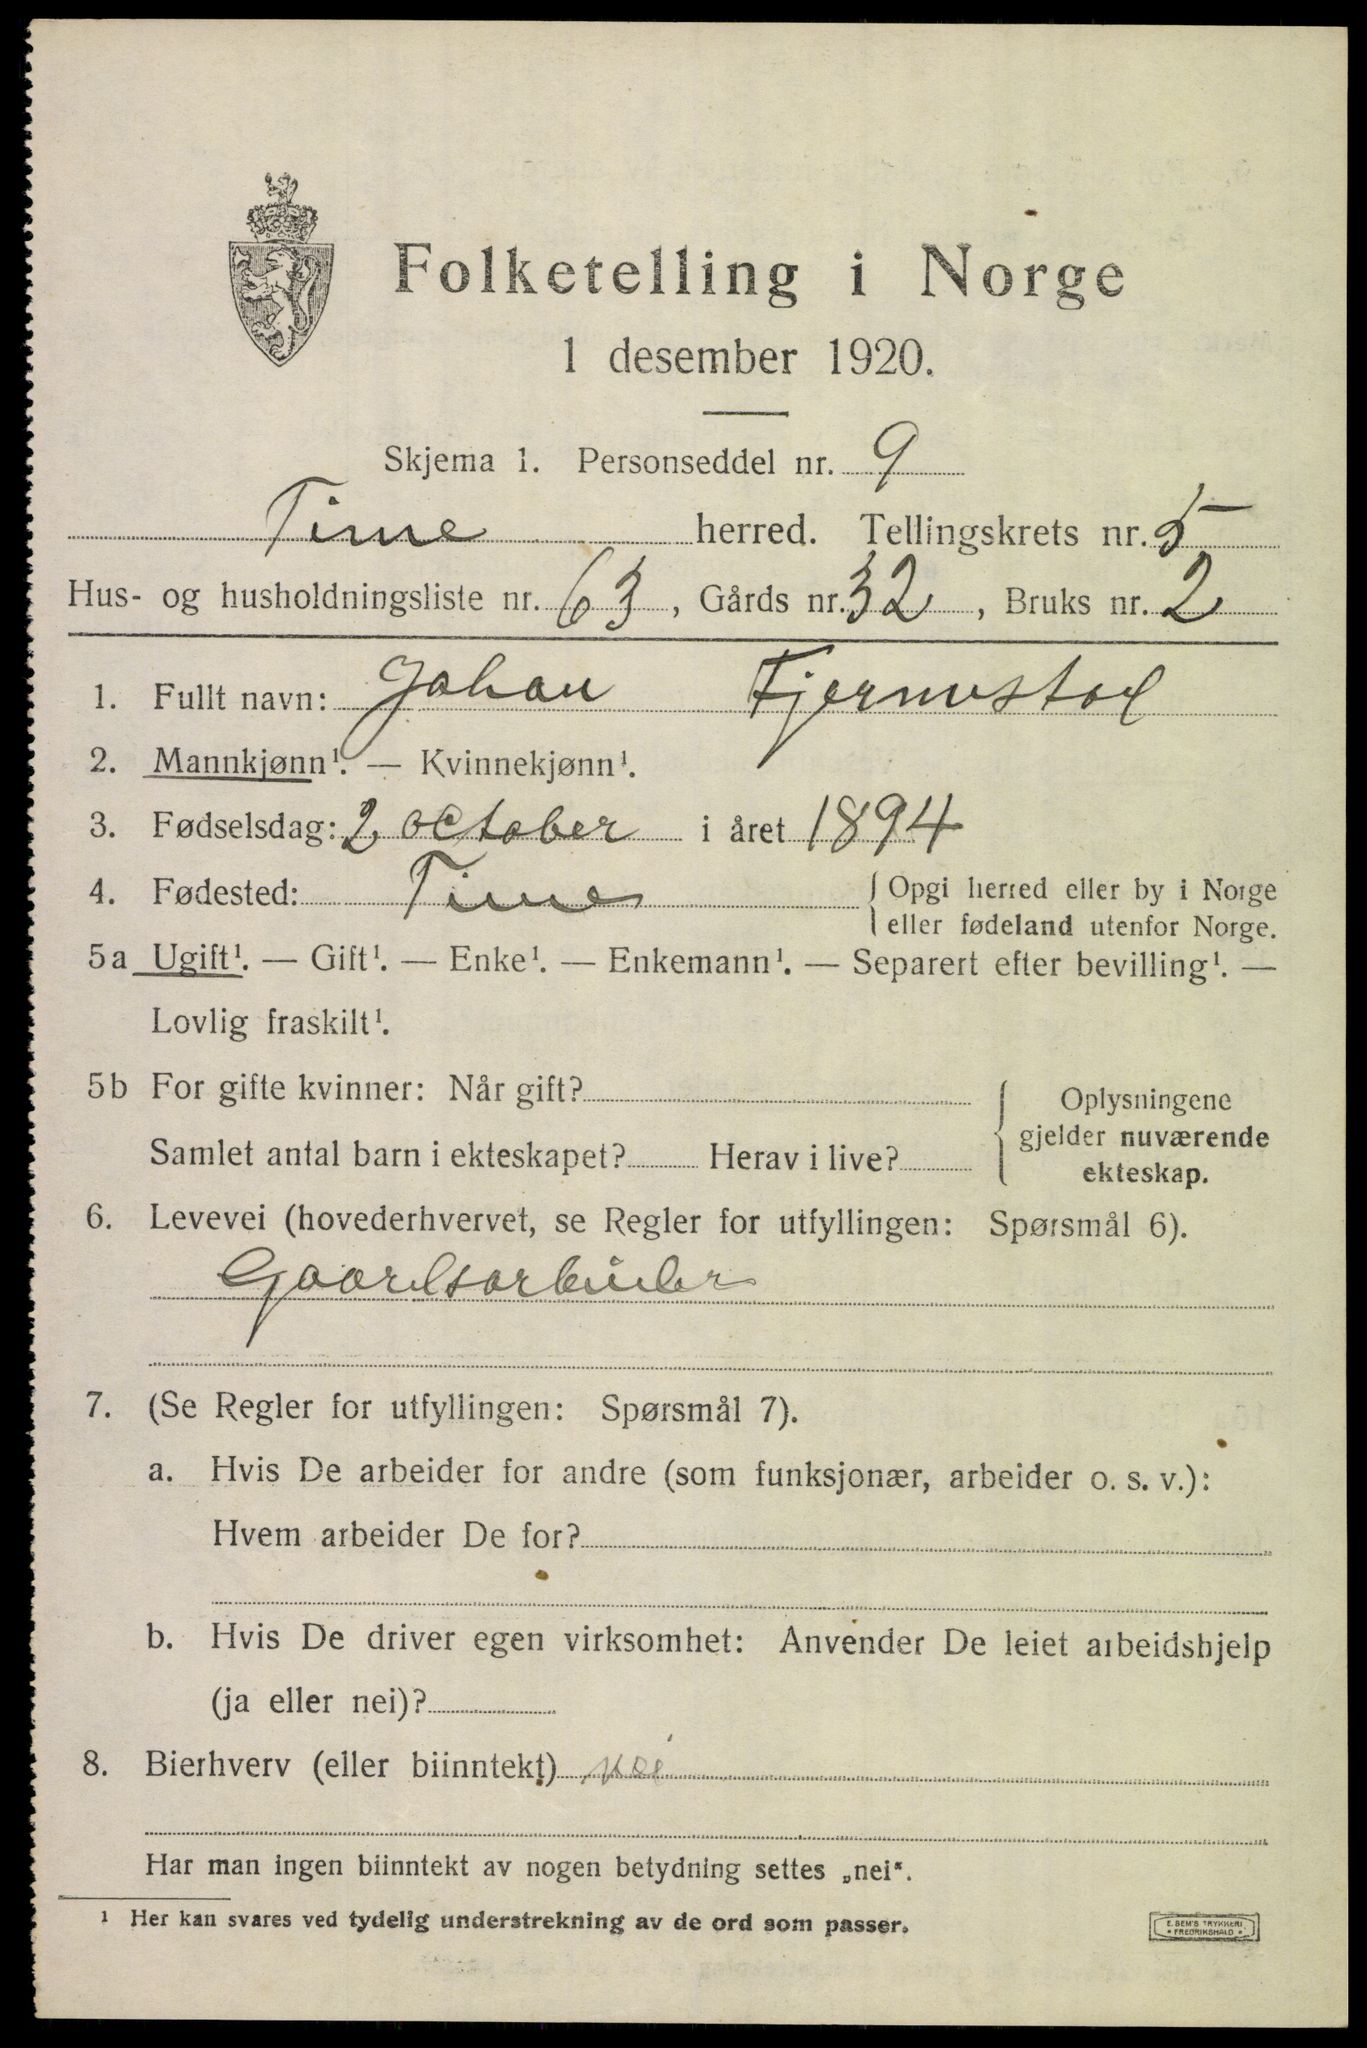 Folketelling i Norge
1 desember 1920.
Skjema 1. Personseddel nr. 9
Time herred. Tellingskrets nr. 5
Hus- og husholdningsliste nr. 63, Gårds nr. 32, Bruks nr. 2
1. Fullt navn: Johan Fjermestad
2. Mannkjønn¹. — Kvinnekjønn¹.
3. Fødselsdag: 2 october i året 1894
4. Fødested: Time { Opgi herred eller by i Norge
eller fødeland utenfor Norge.
5a Ugift¹. — Gift¹. — Enke¹. — Enkemann¹. — Separert efter bevilling¹. —
Lovlig fraskilt¹.
5b For gifte kvinner: Når gift?
Samlet antal barn i ekteskapet? Herav i live?
{ Oplysningene
gjelder nuværende
ekteskap.
6. Levevei (hovederhvervet, se Regler for utfyllingen: Spørsmål 6).
Gaardsarbeider
7. (Se Regler for utfyllingen: Spørsmål 7).
a. Hvis De arbeider for andre (som funksjonær, arbeider o. s. v.):
Hvem arbeider De for?
b. Hvis De driver egen virksomhet: Anvender De leiet arbeidshjelp
(ja eller nei)?
8. Bierhverv (eller biinntekt) nei
Har man ingen biinntekt av nogen betydning settes „nei“.
¹ Her kan svares ved tydelig understrekning av de ord som passer.
E. SEM'S TRYKKERI
* FREDRIKSHALD *